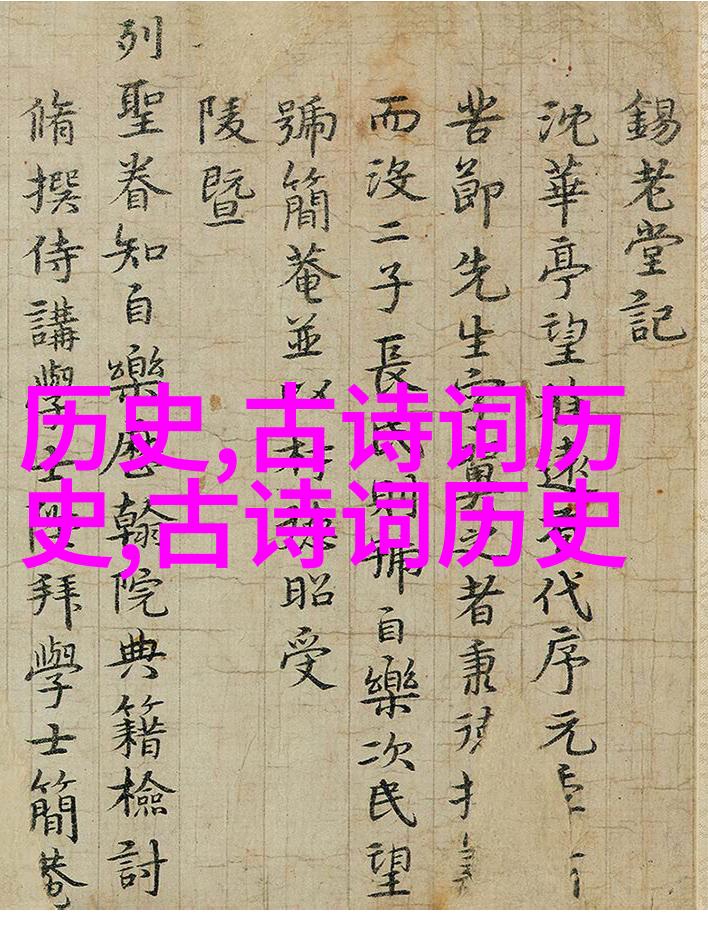 錫老堂記
沈華亭望遠代序元
苦節先生字之者秉
而沒二子長民則號自樂次民望
號簡菴並材昭受
陵暨
列聖眷知自樂歷翰院典籍檢討
脩撰侍講學士陞拜學士簡菴
历史,古诗词历
史,古诗词历史